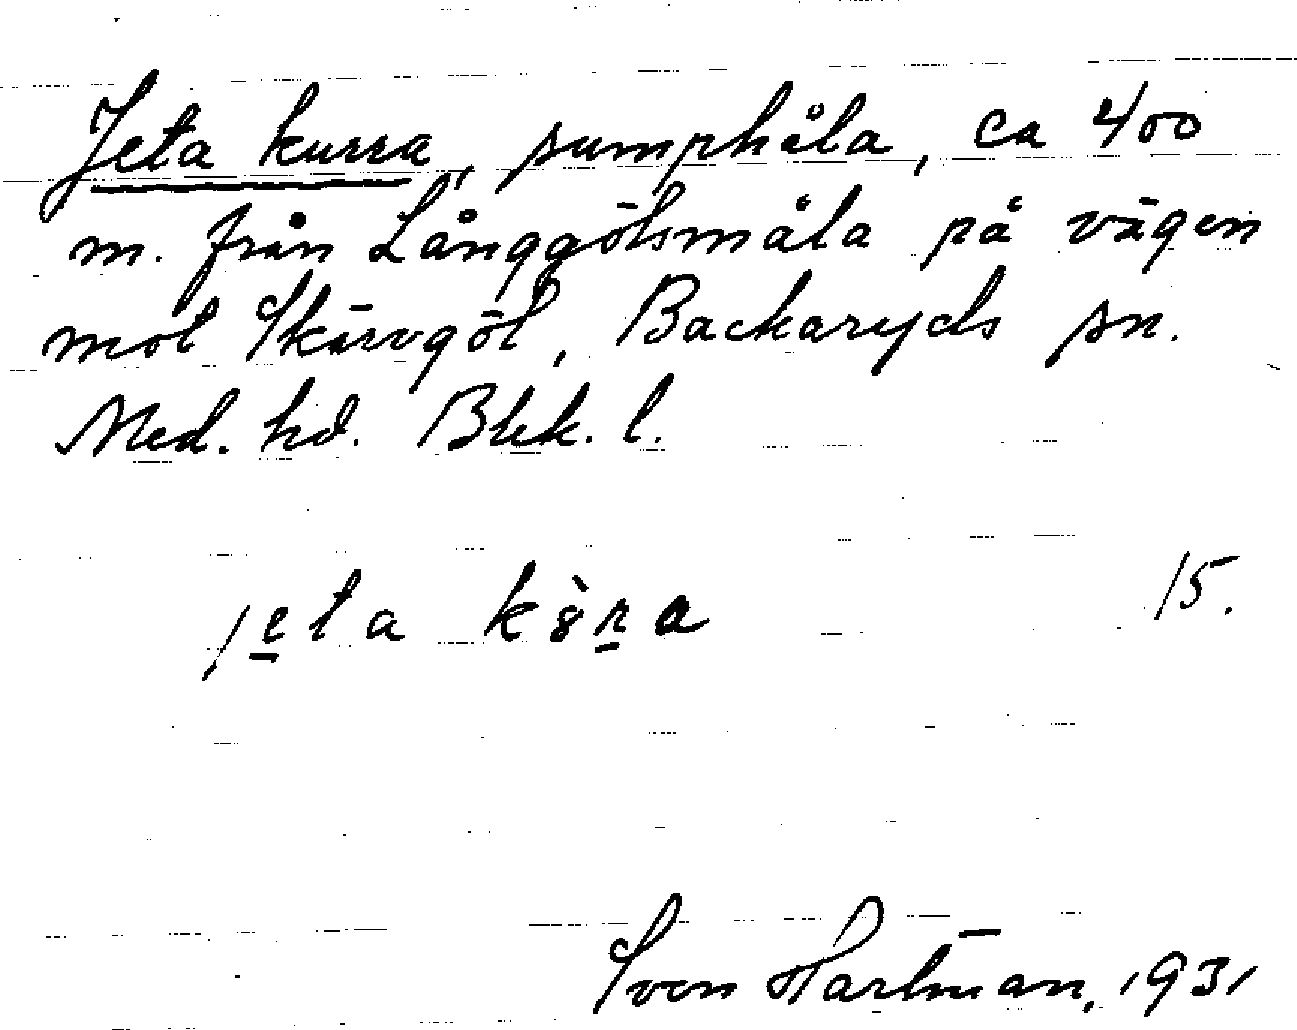 Jeta kurra, sumphåla, ca 400
m. från Långgölsmåla på vägen
mot Skärvgöl, Backaryds sn.
Med. hd. Blek. l.
jeta kò̈ra
15.
Sven Hartman, 1931